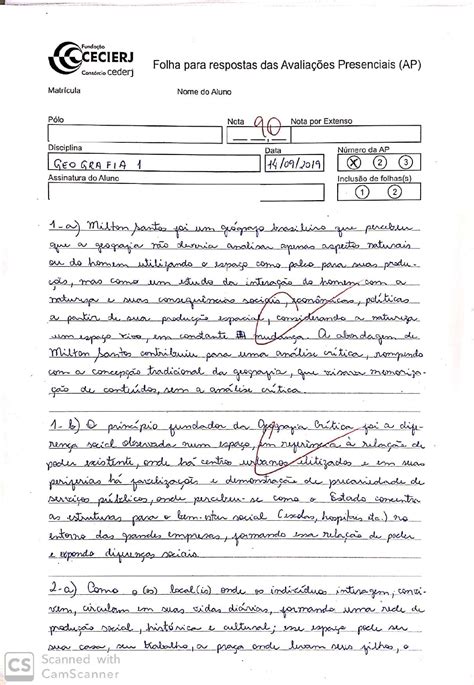 Fundação
CECIERJ
Consórcio cederj
Folha para respostas das Avaliações Presenciais (AP)
Matrícula
Nome do Aluno
Pólo
Nota 9,0
Nota por Extenso
Disciplina
GEOGRAFIA 1
Data
14/09/2019
Número da AP
1 2 3
Assinatura do Aluno
Inclusão de folhas(s)
1 2
1-a) Milton Santos foi um geógrafo brasileiro que percebeu
que a geografia não deveria analisar apenas aspetos naturais
ou do homem utilizando o espaço como palco para suas produ-
ções, mas como um estudo da interação do homem com a
natureza e suas consequências sociais, econômicas, políticas
a partir de sua produção espacial, considerando a natureza
um espaço vivo, em constante mudança. A abordagem de
Milton Santos contribuiu para uma análise crítica, rompendo
com a concepção tradicional da geografia, que visava memoriza-
ção de conteúdos, sem a análise crítica.
1-b) O princípio fundador da Geografia Crítica foi a dife-
rença social observada num espaço, em referência à relação de
poder existente, onde há centros urbanos elitizados e em suas
periferias há favelizações e demonstração de precariedade de
serviços públicos, onde percebeu-se como o Estado concentra
as estruturas para o bem-estar social (escolas, hospitais etc.) no
entorno das grandes empresas, formando essa relação de poder
e expondo diferenças sociais.
2-a) Como o (os) local(is) onde os indivíduos interagem, convi-
vem, circulam em suas vidas diárias, formando uma rede de
produção social, histórica e cultural; esse espaço pode ser
sua casa, seu trabalho, a praça onde levam seus filhos, o
CS Scanned with
CamScanner